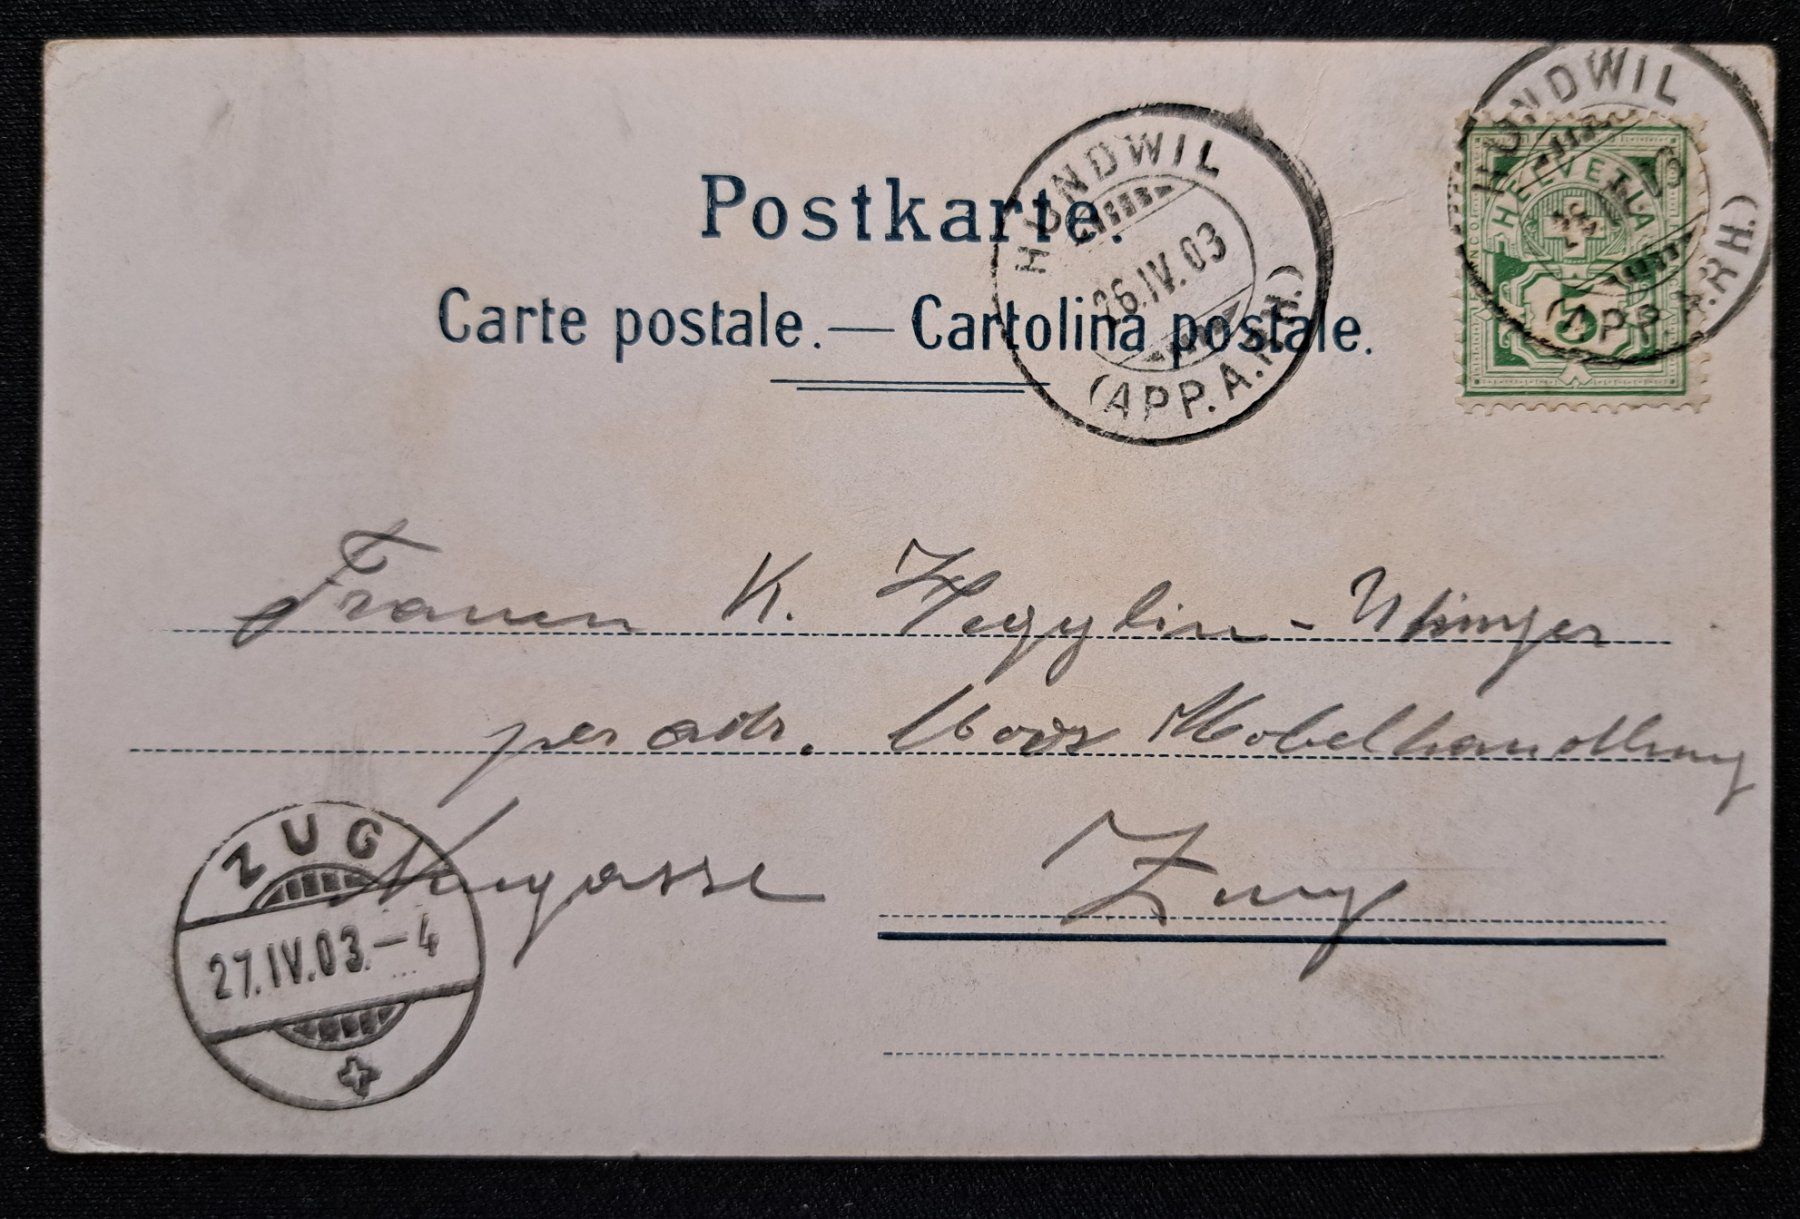 Postkarte.
Carte postale. — Cartolina postale.
HUNDWIL
26.IV.03
(APP. A.RH.)
HUNDWIL
(APP. A.RH.)
HELVETIA
5
Frauen K. Hegglin-
per adr. Möbelhandlung
Neugasse Zug
ZUG
27.IV.03.–4